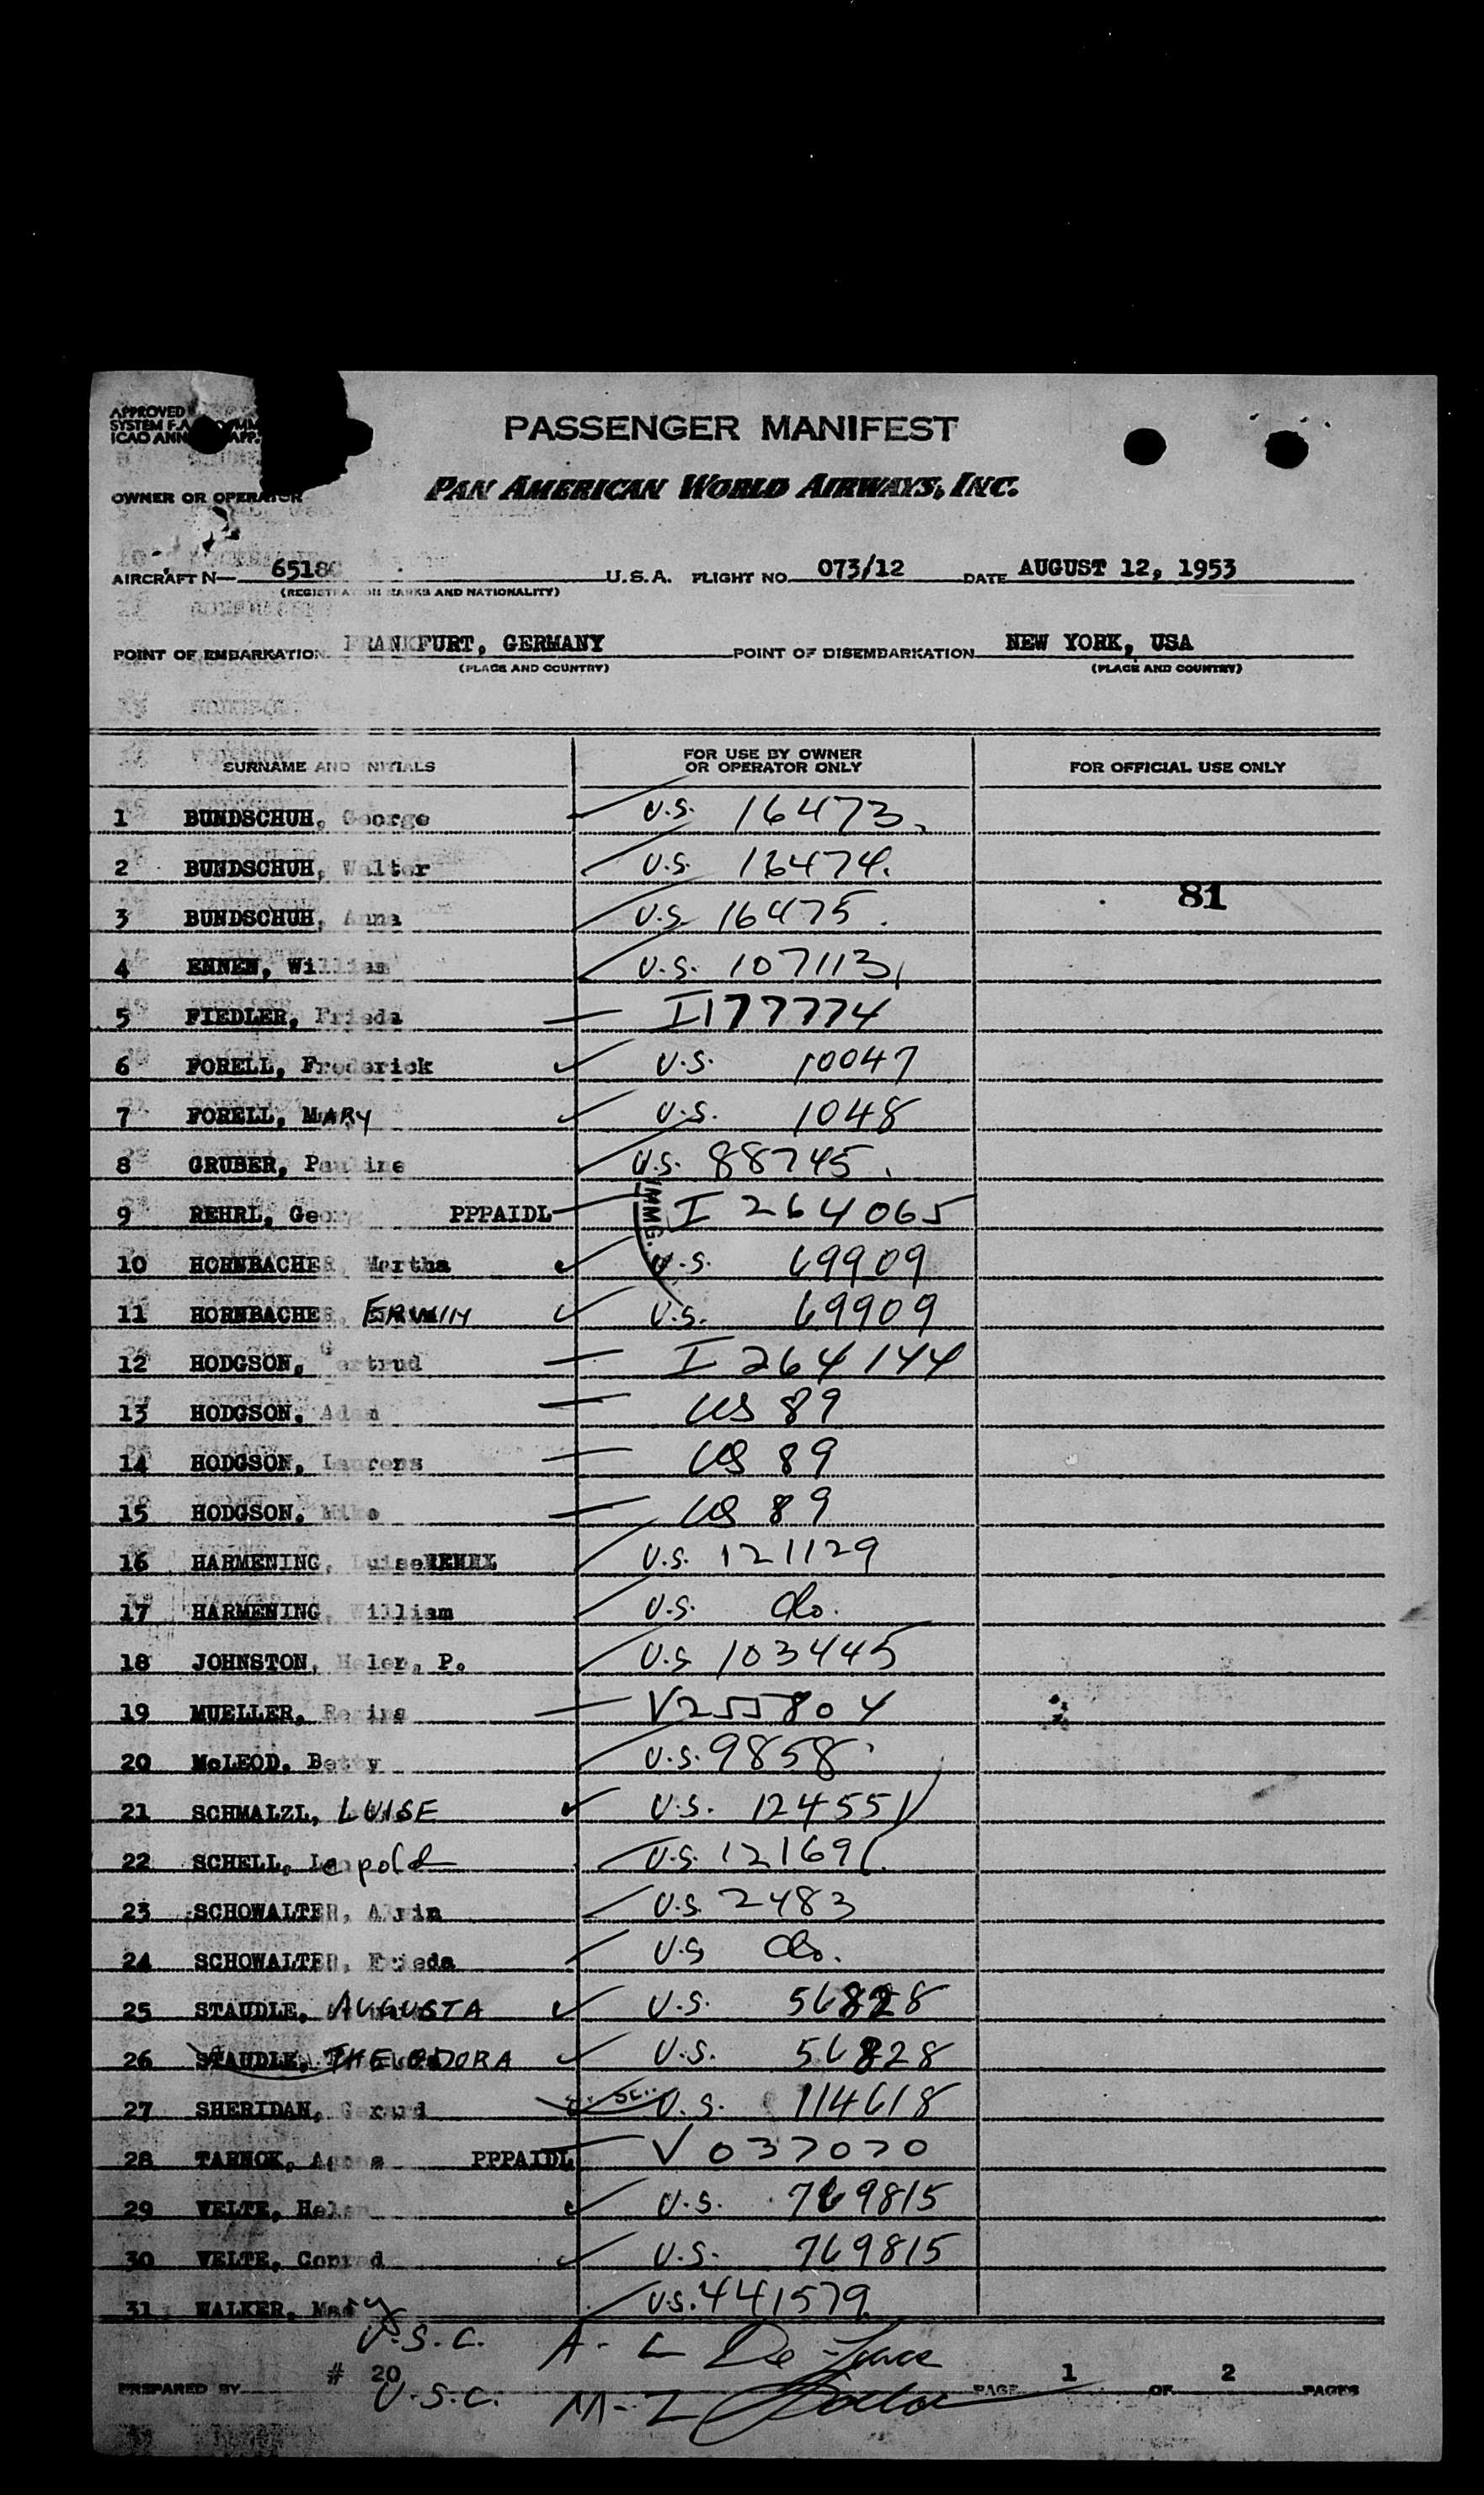 APPROVED
SYSTEM F.A
ICAO ANN APP.
PASSENGER MANIFEST
OWNER OR OPERATOR
PAN AMERICAN WORLD AIRWAYS, INC.
AIRCRAFT N— 6518 U.S.A. FLIGHT NO. 073/12 DATE AUGUST 12, 1953
(REGISTRATION MARKS AND NATIONALITY)
POINT OF EMBARKATION FRANKFURT, GERMANY POINT OF DISEMBARKATION NEW YORK, USA
(PLACE AND COUNTRY) (PLACE AND COUNTRY)
SURNAME AND INITIALS FOR USE BY OWNER OR OPERATOR ONLY FOR OFFICIAL USE ONLY
1 BUNDSCHUH, George U.S. 16473
2 BUNDSCHUH, Walter U.S. 16474.
81
3 BUNDSCHUH, Anna U.S. 16475.
4 ENNEN, William U.S. 107113
5 FIEDLER, Frieda I 177774
6 FORELL, Frederick U.S. 10047
7 FORELL, MARY U.S. 1048
8 GRUBER, Pauline U.S. 88745.
9 REHRL, Georg PPPAIDL I 264065
IMMG.
10 HORNBACHER, Martha U.S. 69909
11 HORNBACHER, ERWIN U.S. 69909
12 HODGSON, Gertrud I 264144
13 HODGSON, Adam US 89
14 HODGSON, Laurens US 89
15 HODGSON, Mike US 89
16 HARMENING, Luise U.S. 121129
17 HARMENING, William U.S. do.
18 JOHNSTON, Helen, P. U.S 103445
19 MUELLER, Regina V255804
20 McLEOD, Betty U.S. 9858
21 SCHMALZL, LUISE U.S. 124551
22 SCHELL, Leopold U.S. 121691
23 SCHOWALTER, Alvin U.S. 2483
24 SCHOWALTER, Frieda U.S do.
25 STAUDLE, AUGUSTA U.S. 56828
26 STAUDLE, THEODORA U.S. 56828
27 SHERIDAN, U.S. 114618
28 TARNOK, Agnes PPPAIDL V 037070
29 VELTE, Helen U.S. 769815
30 VELTE, Conrad U.S. 769815
31 WALKER, Mary U.S. 441579
U.S.C. A - L
PREPARED BY # 20 PAGE 1 OF 2 PAGES
U.S.C. M - Z